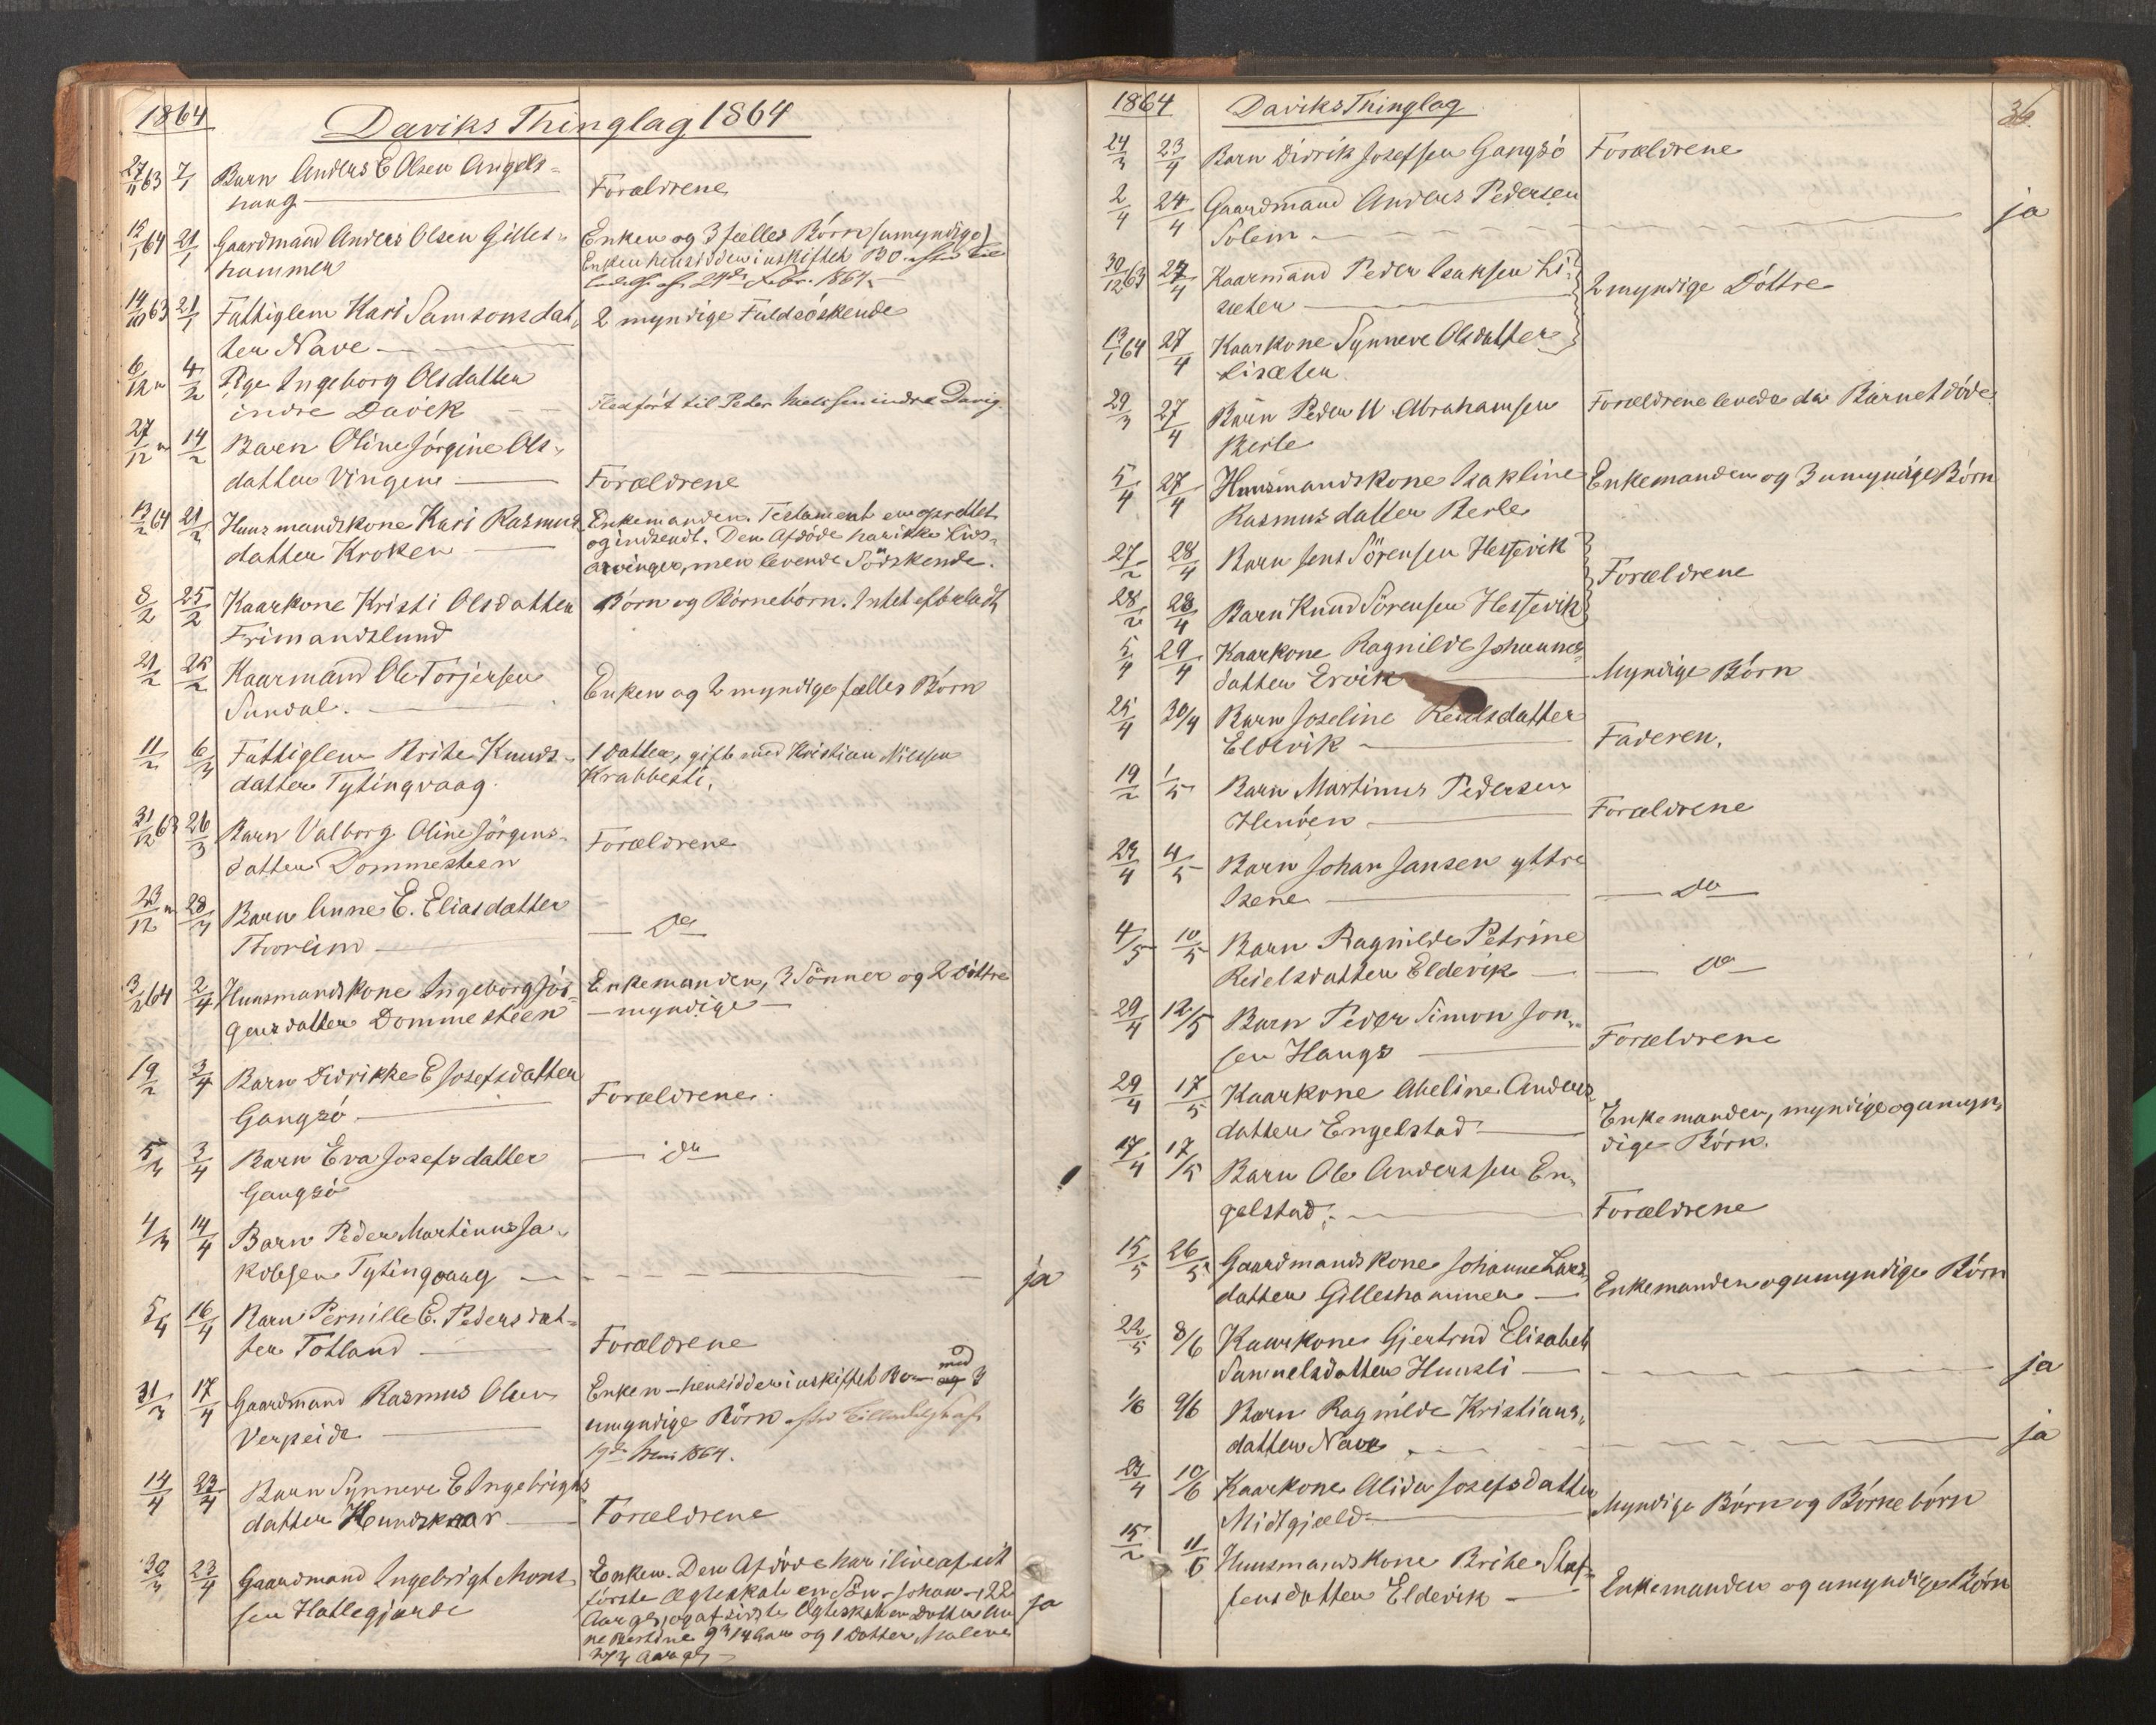 1864 Daviks Thinglag 1864
27/11 63 7/1 Barn Anders E Olsen Angels=
haug — Forældrene
13/1 64 21/1 Gaardmand Anders Olsen Gilles-
hammer
Enken og 3 fælles Börn (umyndige)
Enken hensidder i uskiftet Bo
24de Febr. 1864.
14/10 63 21/1 Fattiglem Kari Samsonsdat-
ter Nave —
2 myndige Fuldsöskende
6/12 " 4/2 Pige Ingeborg Olsdatter
indre Davik — —
Fledfört til Peder indre Davig.
27/12 " 14/2 Barn Oline Jörgine Ols-
datter Vingen — Forældrene
13/2 64 21/2 Huusmandskone Kari Rasmus-
datter Kroken —
Enkemanden. Testament er oprettet
og indsendt. Den Afdöde har ikke Livs-
arvinger, men levende Södskende.
8/2 25/2 Kaarkone Kristi Olsdatter
Frimandslund
Börn og Börnebörn. Intet efterladt
21/2 25/2 Kaarmand Ole Torjersen
Sundal. —
Enken og 2 myndige fælles Börn
11/2 6/3 Fattiglem Brite Knuds-
datter Tytingvaag.
1 Datter, gift med Kristian Nilssen
Krabbesti.
31/12 63 26/3 Barn Valborg Oline Jörgens-
datter Dommesteen
Forældrene
23/12 " 28/3 Barn Anne E. Eliasdatter
Thorlim — — Do —
3/2 64 2/4 Huusmandskone Ingeborg Jör-
gensdatter Dommesteen
Enkemanden, 3 Sönner og 2 Döttre
— myndige —
19/2 3/4 Barn Didrikke E Josefsdatter
Gangsö — Forældrene.
5/3 3/4 Barn Eva Josefsdatter
Gangsö — do
4/3 14/4 Barn Peder Martinus Ja-
kobsen Tytingvaag — — — — ja
5/4 16/4 Barn Pernille E. Pedersdat-
ter Totland — Forældrene
31/3 17/4 Gaardmand Rasmus Olsen
Verpeide —
Enken — hensidder i uskiftet Bo — med og 3
umyndige Börn
1864.
14/4 23/4 Barn Synneve E Ingebrigts
datter Hundskaar — Forældrene
30/3 23/4 Gaardmand Ingebrigt Mons-
sen Hatlegjerde
Enken. Den Afdöde har i live af sit
förste Ægteskab en Sön — Johan — 22
Aar gl, og af sidste Ægteskab en Datter An
ne 14 Aar og 1 Datter, Malene
Aar gl — ja
1864 Daviks Thinglag 36.
24/3 23/4 Barn Didrik Josefsen Gangsö Forældrene
2/4 24/4 Gaardmand Anders Pedersen
Solem — — — — ja
30/12 63 27/4 Kaarmand Peder Isaksen Li-
sæter —
2 myndige Döttre
13/1 64 27/4 Kaarkone Synneve Olsdatter
Lisæter
29/3 27/4 Barn Peder N Abrahamsen
Berle
Forældrene levede da Barnet döde.
5/4 27/4 Huusmandskone Isakline
Rasmusdatter Berle
Enkemanden og 3 umyndige Börn
27/2 28/4 Barn Jens Sörensen Hessevik
Forældrene
28/2 28/4 Barn Knud Sörensen Hessevik
5/4 29/4 Kaarkone Ragnilde Johannes-
datter Ervik — Myndige Börn
25/4 30/4 Barn Joseline Reidsdatter
Eldevik — Faderen.
19/2 1/5 Barn Martinus Pedersen
Henöen — Forældrene
23/4 4/5 Barn Johan Jansen yttre
Isene — — Do —
4/5 10/5 Barn Ragnilde Petrine
Reielsdatter Eldevik — — Do —
29/4 12/5 Barn Peder Simon Jon-
sen Haugs — Forældrene
29/4 17/5 Kaarkone Abeline Anders-
datter Engelstad —
Enkemanden, myndige og umyn-
dige Börn.
17/4 17/5 Barn Ole Anderssen En-
gelstad. — Forældrene
15/5 26/5 Gaardmandskone Johanne Lars-
datter Gilleshammer —
Enkemanden og umyndige Börn
22/5 8/6 Kaarkone Gjertrud Elisabeth
Samuelsdatter Hunsli — — — ja
1/6 9/6 Barn Ragnilde Kristians-
datter Nave — — — ja
23/4 10/6 Kaarkone Alida Josefsdatter
Midtgjeld — Myndige Börn og Börnebörn
15/2 11/6 Huusmandskone Brite Stef-
fensdatter Eldevik —
Enkemanden og umyndige Börn